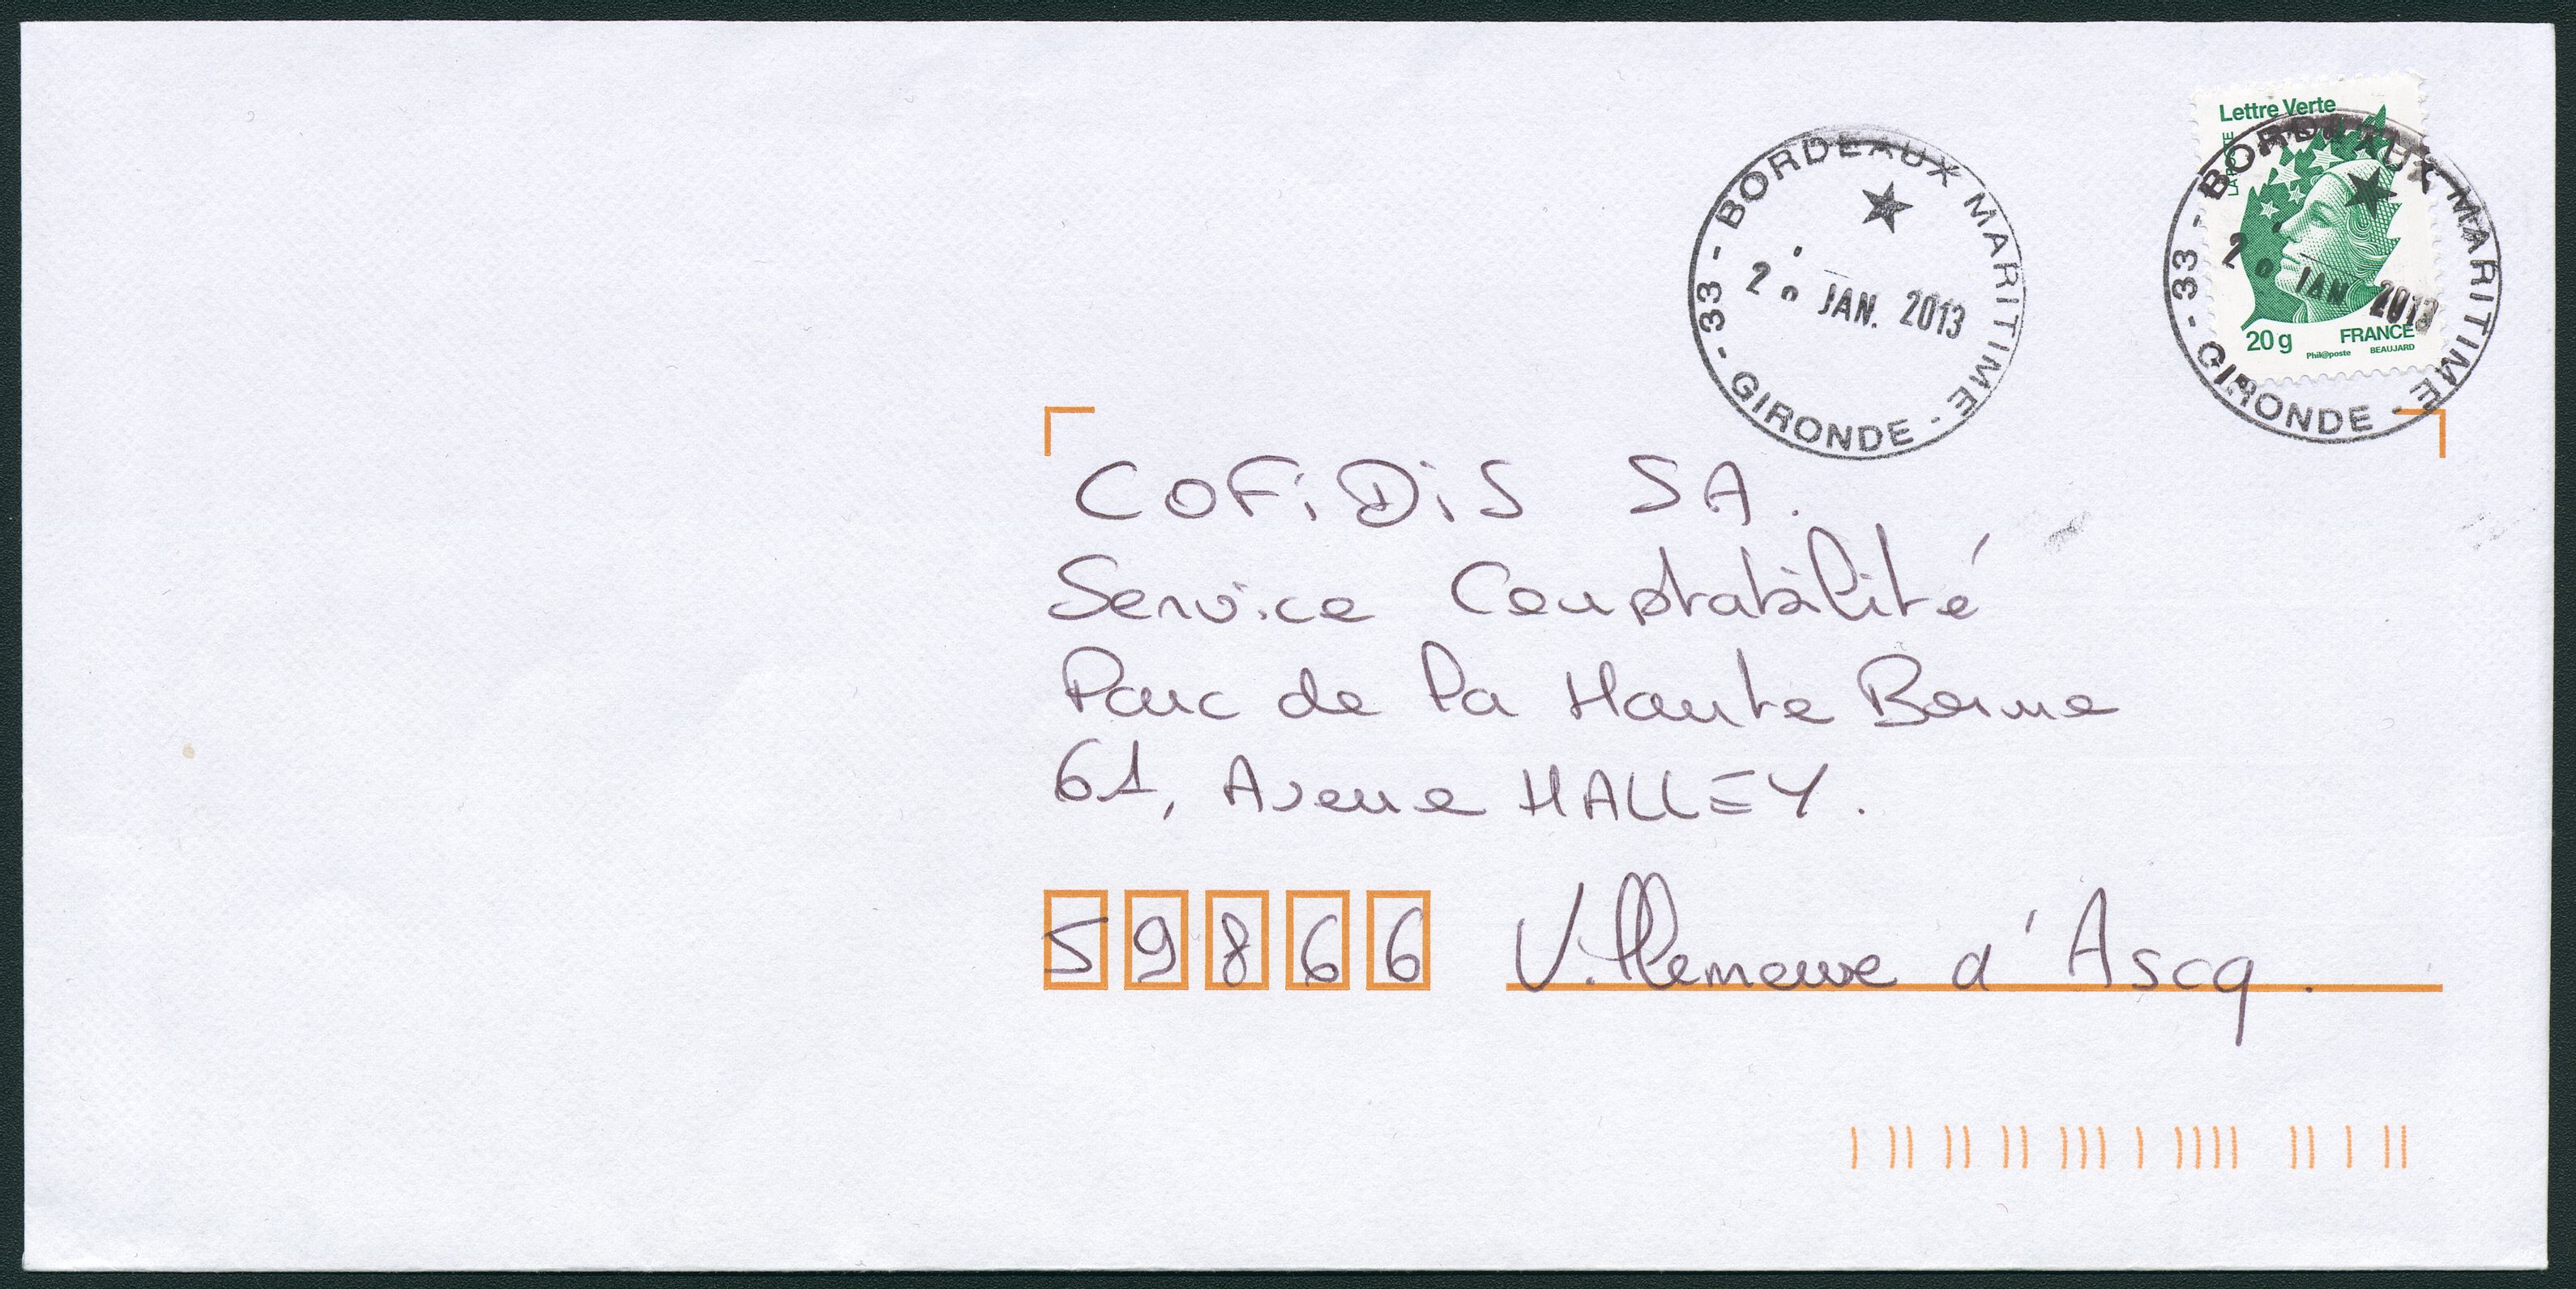 Lettre Verte
LA POSTE
20g FRANCE
Phil@poste BEAUJARD
33 - BORDEAUX MARITIME - GIRONDE -
JAN. 2013
33 - BORDEAUX MARITIME - GIRONDE -
JAN 2013
COFiDiS SA.
Service Comptabilité
Parc de la Haute Borne
61, Avenue HALLEY.
59866 Villeneuve d'Ascq.